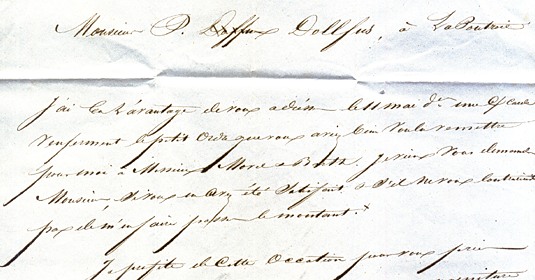 Monsieur P. Dollfus, à LaPoutroie
J'ai eu l'avantage de vous adresser le 11 mai dr. une
renfermant le petit ordre que vous aviez bien voulu remettre
pour moi à Messieurs More & Je viens vous demander
Monsieur, si vous en avez été satisfait, & s'il ne vous
pas de m'en faire passer le montant.
Je profite de cette occasion pour vous